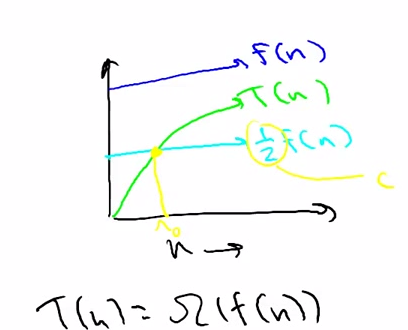 f(n)
T(n)
1/2 f(n)
c
n₀
n →
T(n) = Ω(f(n))